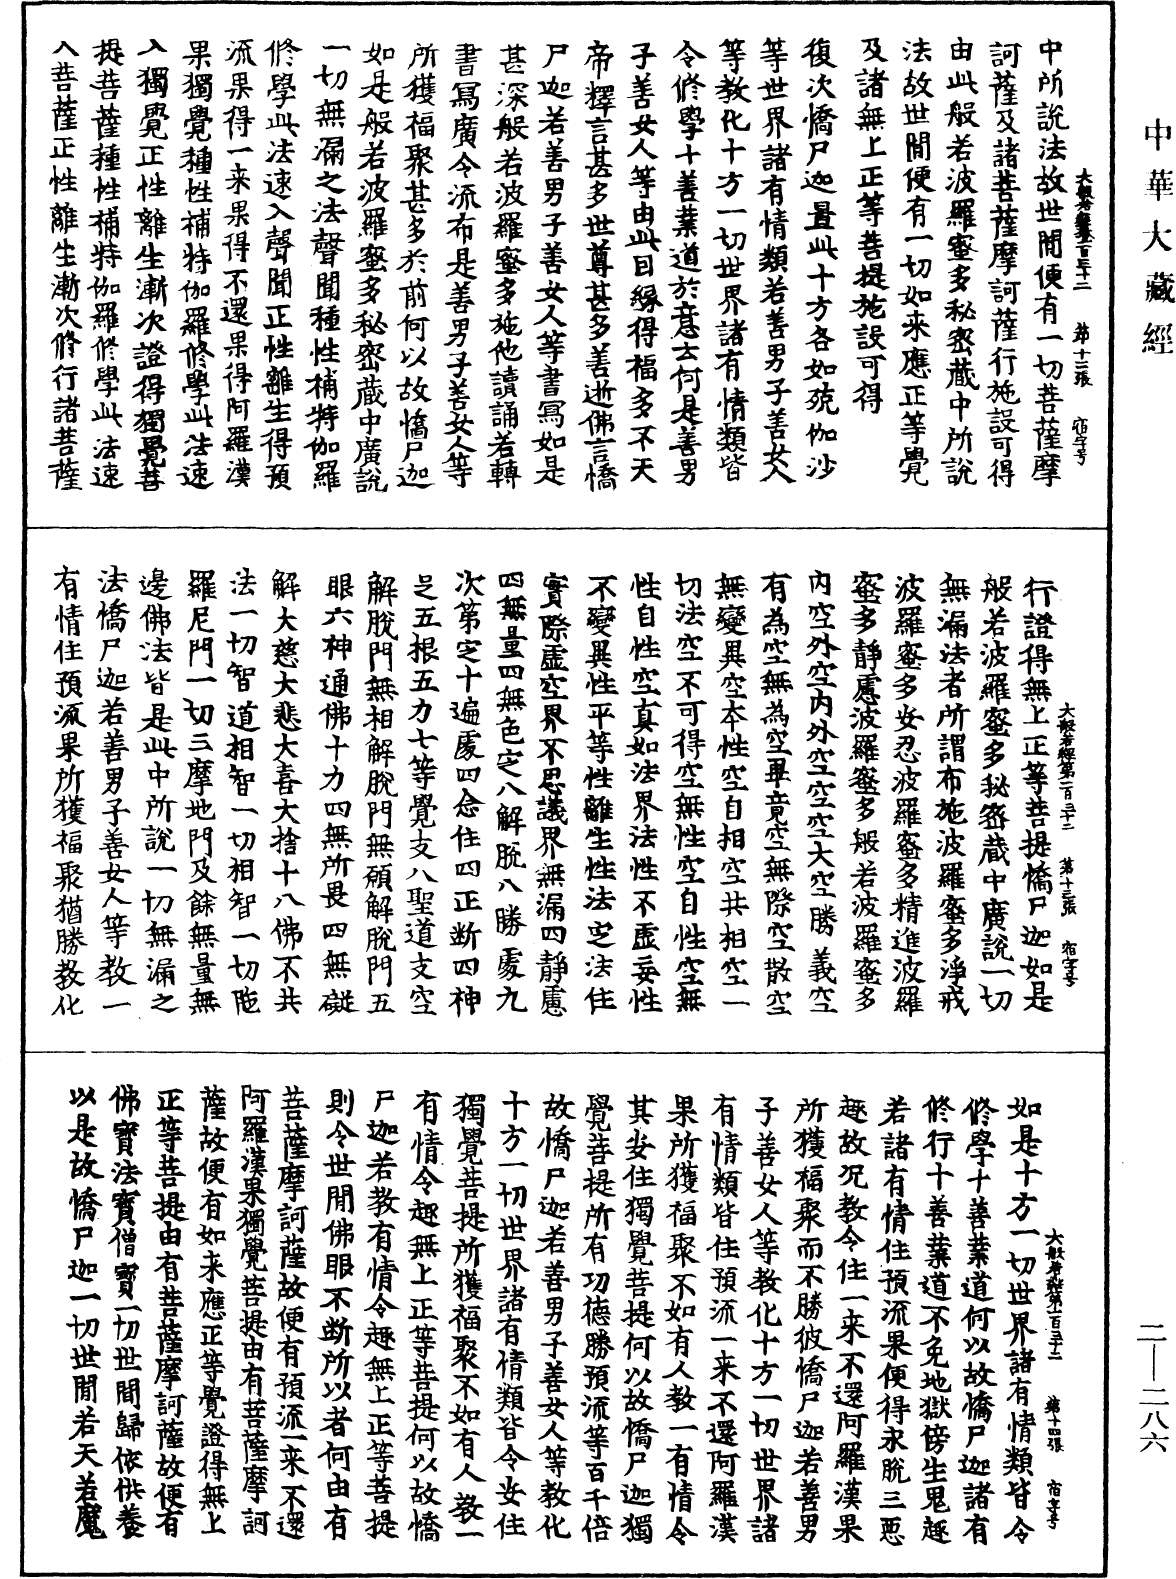 中華大藏經
中所說法故世閒便有一切菩薩摩
訶薩及諸菩薩摩訶薩行施設可得
由此般若波羅蜜多秘密藏中所說
法故世閒便有一切如来應正等覺
及諸無上正等菩提施設可得
復次憍尸迦置此十方各如殑伽沙
等世界諸有情類若善男子善女人
等教化十方一切世界諸有情類皆
令修學十善業道於意云何是善男
子善女人等由此因緣得福多不天
帝釋言甚多世尊甚多善逝佛言憍
尸迦若善男子善女人等書寫如是
甚深般若波羅蜜多施他讀誦若轉
書寫廣令流布是善男子善女人等
所獲福聚甚多於前何以故憍尸迦
如是般若波羅蜜多秘密藏中廣說
一切無漏之法聲聞種性補特伽羅
修學此法速入聲聞正性離生得預
流果得一来果得不還果得阿羅漢
果獨覺種性補特伽羅修學此法速
入獨覺正性離生漸次證得獨覺菩
提菩薩種性補特伽羅修學此法速
入菩薩正性離生漸次修行諸菩薩
大般若經卷一百三十二 第十二張 宿字号
行證得無上正等菩提憍尸迦如是
般若波羅蜜多秘密藏中廣說一切
無漏法者所謂布施波羅蜜多淨戒
波羅蜜多安忍波羅蜜多精進波羅
蜜多靜慮波羅蜜多般若波羅蜜多
內空外空內外空空空大空勝義空
有為空無為空畢竟空無際空散空
無變異空本性空自相空共相空一
切法空不可得空無性空自性空無
性自性空真如法界法性不虛妄性
不變異性平等性離生性法定法住
實際虛空界不思議界無漏四靜慮
四無量四無色定八解脫八勝處九
次第定十遍處四念住四正斷四神
足五根五力七等覺支八聖道支空
解脫門無相解脫門無願解脫門五
眼六神通佛十力四無所畏四無礙
解大慈大悲大喜大捨十八佛不共
法一切智道相智一切相智一切陁
羅尼門一切三摩地門及餘無量無
邊佛法皆是此中所說一切無漏之
法憍尸迦若善男子善女人等教一
有情住預流果所獲福聚猶勝教化
大般若經第一百三十二 第十三張 宿字号
如是十方一切世界諸有情類皆令
修學十善業道何以故憍尸迦諸有
修行十善業道不免地獄傍生鬼趣
若諸有情住預流果便得永脫三惡
趣故況教令住一来不還阿羅漢果
所獲福聚而不勝彼憍尸迦若善男
子善女人等教化十方一切世界諸
有情類皆住預流一来不還阿羅漢
果所獲福聚不如有人教一有情令
其安住獨覺菩提何以故憍尸迦獨
覺菩提所有功德勝預流等百千倍
故憍尸迦若善男子善女人等教化
十方一切世界諸有情類皆令安住
獨覺菩提所獲福聚不如有人教一
有情令趣無上正等菩提何以故憍
尸迦若教有情令趣無上正等菩提
則令世閒佛眼不斷所以者何由有
菩薩摩訶薩故便有預流一来不還
阿羅漢果獨覺菩提由有菩薩摩訶
薩故便有如来應正等覺證得無上
正等菩提由有菩薩摩訶薩故便有
佛寶法寶僧寶一切世閒歸依供養
以是故憍尸迦一切世閒若天若魔
大般若經第一百三十二 第十四張 宿字号
二—二八六